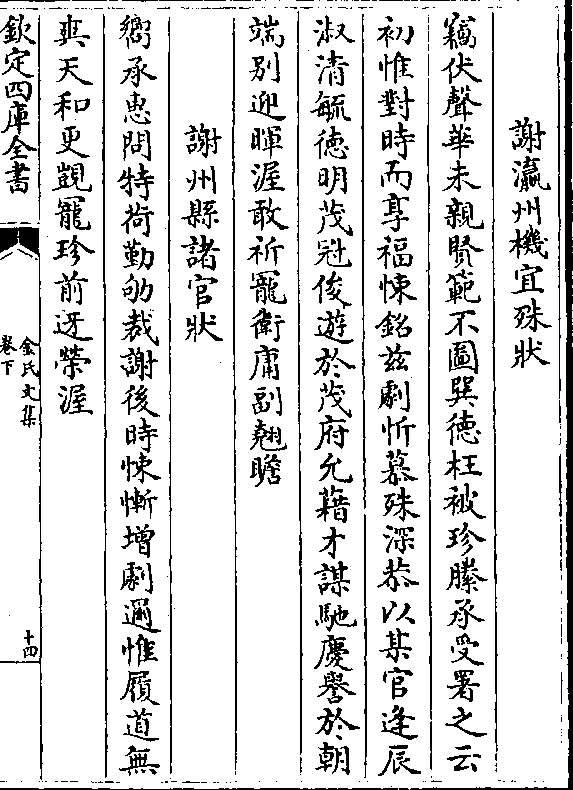 謝瀛州機宜殊狀
竊伏聲華未親賢範不圖巽德枉被珍賸承受署之云
初惟對時而享福悚銘兹劇忻慕殊深恭以某官逢辰
淑清毓德明茂冠俊遊於茂府允藉才謀馳慶譽於朝
端别迎暉渥敢祈寵衛庸副翹瞻
謝州縣諸官狀
嚮承惠問特荷勤劬裁謝後時悚慚增劇邇惟履道無
爽天和更覬寵珍前迓榮渥
欽定四庫全書
金氏文集
卷下
十四